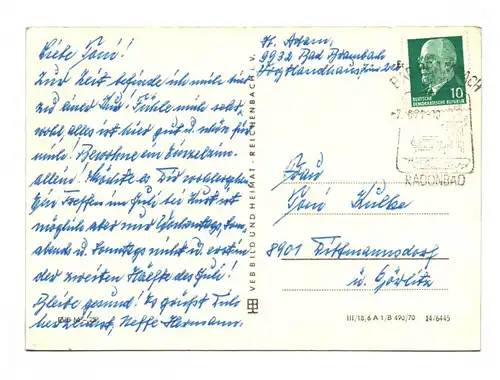 Liebe Toni!
Zur Zeit befinde ich mich hier
zu einer Kur! Fühle mich sehr
wohl, alles ist hier gut u. schön für
mich! Bewohne ein Einzelzim-
allein! Möchte es Dir wohlergehn
Ein Treffen im Juli bei Kurt ist
möglich aber nur Sonn-
abends u. Sonntags nicht u. erst in
der zweiten Hälfte des Juli!
Bleibe gesund! Es grüßt Dich
herzlichst, Neffe Hermann.
H. Adam,
9932 Bad Brambach
Vogtlandhaus
10
DEUTSCHE
DEMOKRATISCHE REPUBLIK
RADONBAD
VEB BILD UND HEIMAT · REICHENBACH i. V.
Frau
Toni Kulke
8901 Dittmannsdorf
ü. Görlitz
III/18/6 A 1/B 490/70 14/6445